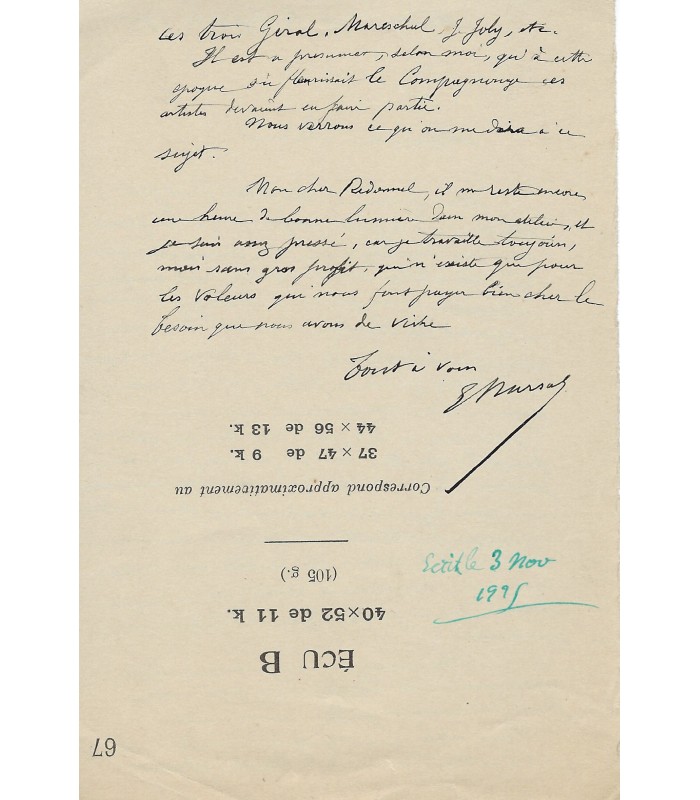 ces trois Giral, Mareschal, J. Joly, etc.
Il est a presumer, selon moi, qu'à cette
epoque où fleurissait le Compagnonage ces
artistes devaient en faire partie.
Nous verrons ce qu'on me dira à ce
sujet.
Mon cher Redonnel, il me reste encore
une heure de bonne lumière dans mon atelier, et
je suis assez pressé, car je travaille toujours,
mais sans gros profit, qui n'existe que pour
les voleurs qui nous font payer bien cher le
besoin que nous avons de vivre
Tout à vous
E Marsal
44 × 56 de 13 k.
37 × 47 de 9 k.
Correspond approximativement au
Ecrit le 3 Nov
(105 g.)
40×52 de 11 k.
ÉCU B
67